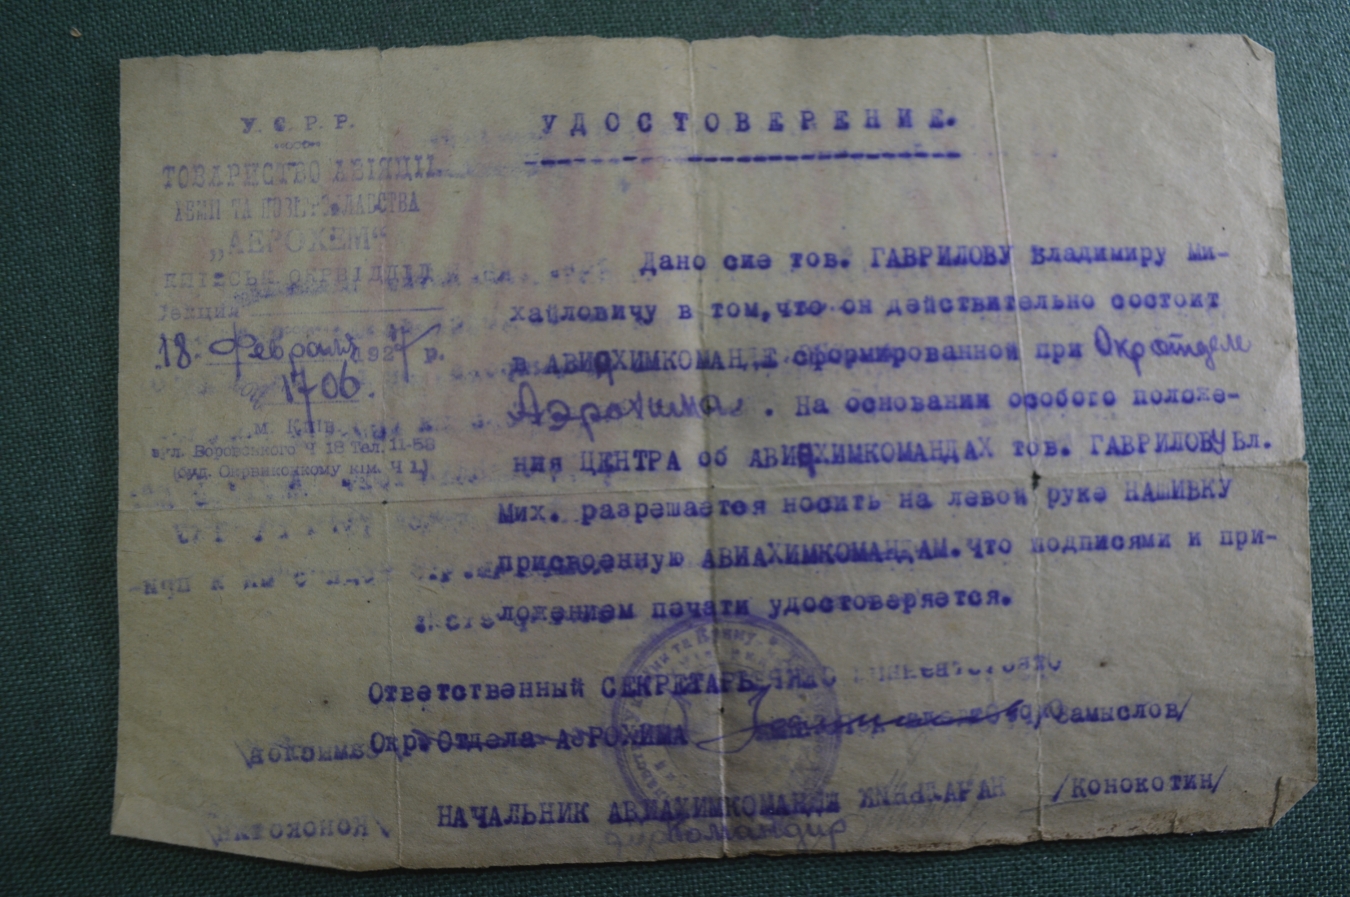 У. С. Р. Р.
ТОВАРИСТВО АВІЯЦІЇ
ХЕМИ ТА
„АЕРОХЕМ“
Секция
18. Февраля 1927 г.
№ 1706.
м. Київ.
вул. Воровського Ч 18 Тел. 11-58
(буд. Окрвиконкому кім. Ч 1)
УДОСТОВЕРЕНИЕ.
Дано сие тов. ГАВРИЛОВУ Владимиру Ми-
хайловичу в том, что он действительно состоит
в АВИОХИМКОМАНДЕ сформированной при Окротделе
Аэрохима. На основании особого положе-
ния ЦЕНТРА об АВИОХИМКОМАНДАХ тов. ГАВРИЛОВУ Вл.
Мих. разрешается носить на левой руке НАШИВКУ
присвоенную АВИАХИМКОМАНДАМ. что подписями и при-
ложением печати удостоверяется.
Ответственный СЕКРЕТАРЬ
Окр. Отдела АЭРОХИМА /Замыслов/
НАЧАЛЬНИК АВИАХИМКОМАНДЫ /Конокотин/